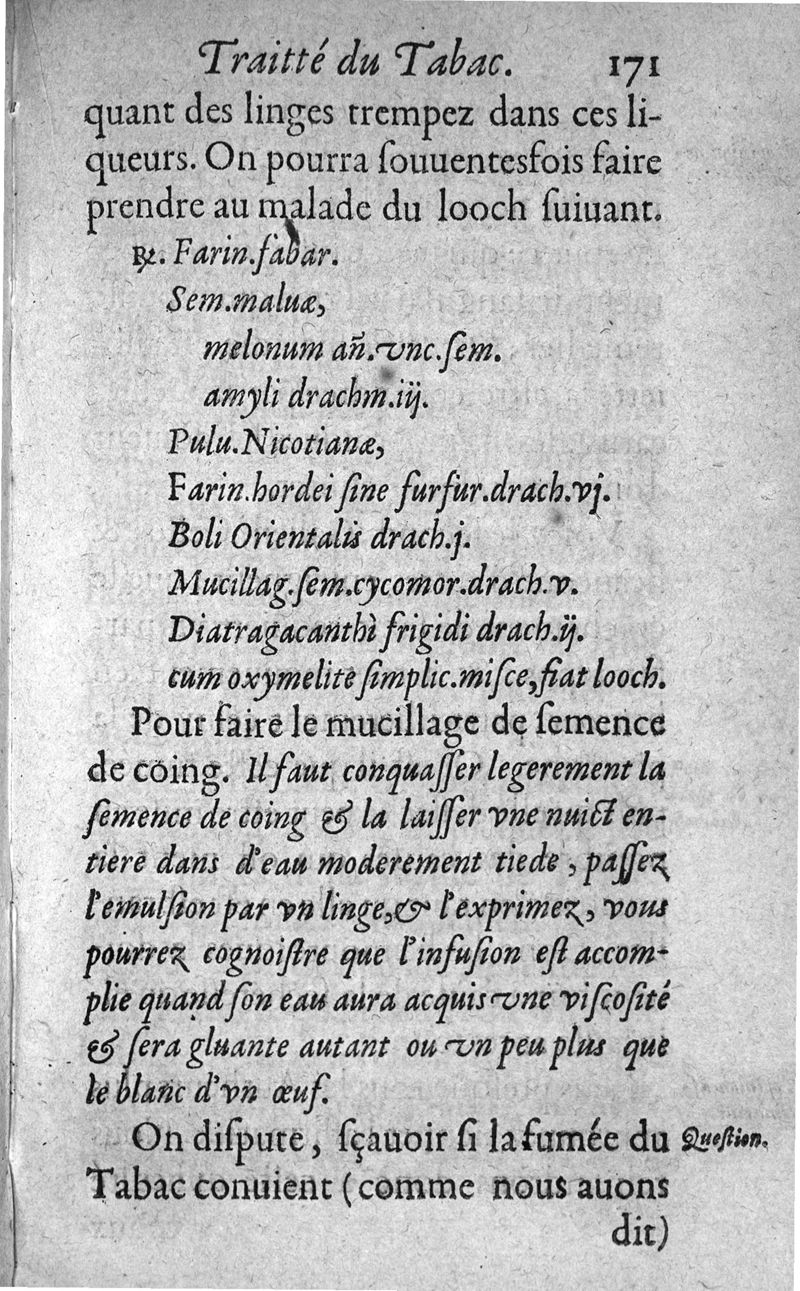 Traitté du Tabac. 171
quant des linges trempez dans ces li-
queurs. On pourra ſouuentesfois faire
prendre au malade du looch ſuiuant.
℞. Farin.fabar.
Sem.maluæ,
melonum añ.vnc.ſem.
amyli drachm.iij.
Pulu.Nicotianæ,
Farin.hordei ſine furfur.drach.vj.
Boli Orientalis drach.j.
Mucillag.ſem.cycomor.drach.v.
Diatragacanthi frigidi drach.ij.
cum oxymelite ſimplic.miſce,fiat looch.
Pour faire le mucillage de ſemence
de coing. Il faut conquaſſer legerement la
ſemence de coing & la laiſſer vne nuict en-
tiere dans d'eau moderement tiede, paſſez
l'emulſion par vn linge,& l'exprimez, vous
pourrez cognoiſtre que l'infuſion eſt accom-
plie quand ſon eau aura acquis vne viſcoſité
& ſera gluante autant ou vn peu plus que
le blanc d'vn œuf.
On diſpute, ſçauoir ſi la fumée du Queſtion.
Tabac conuient (comme nous auons
dit)